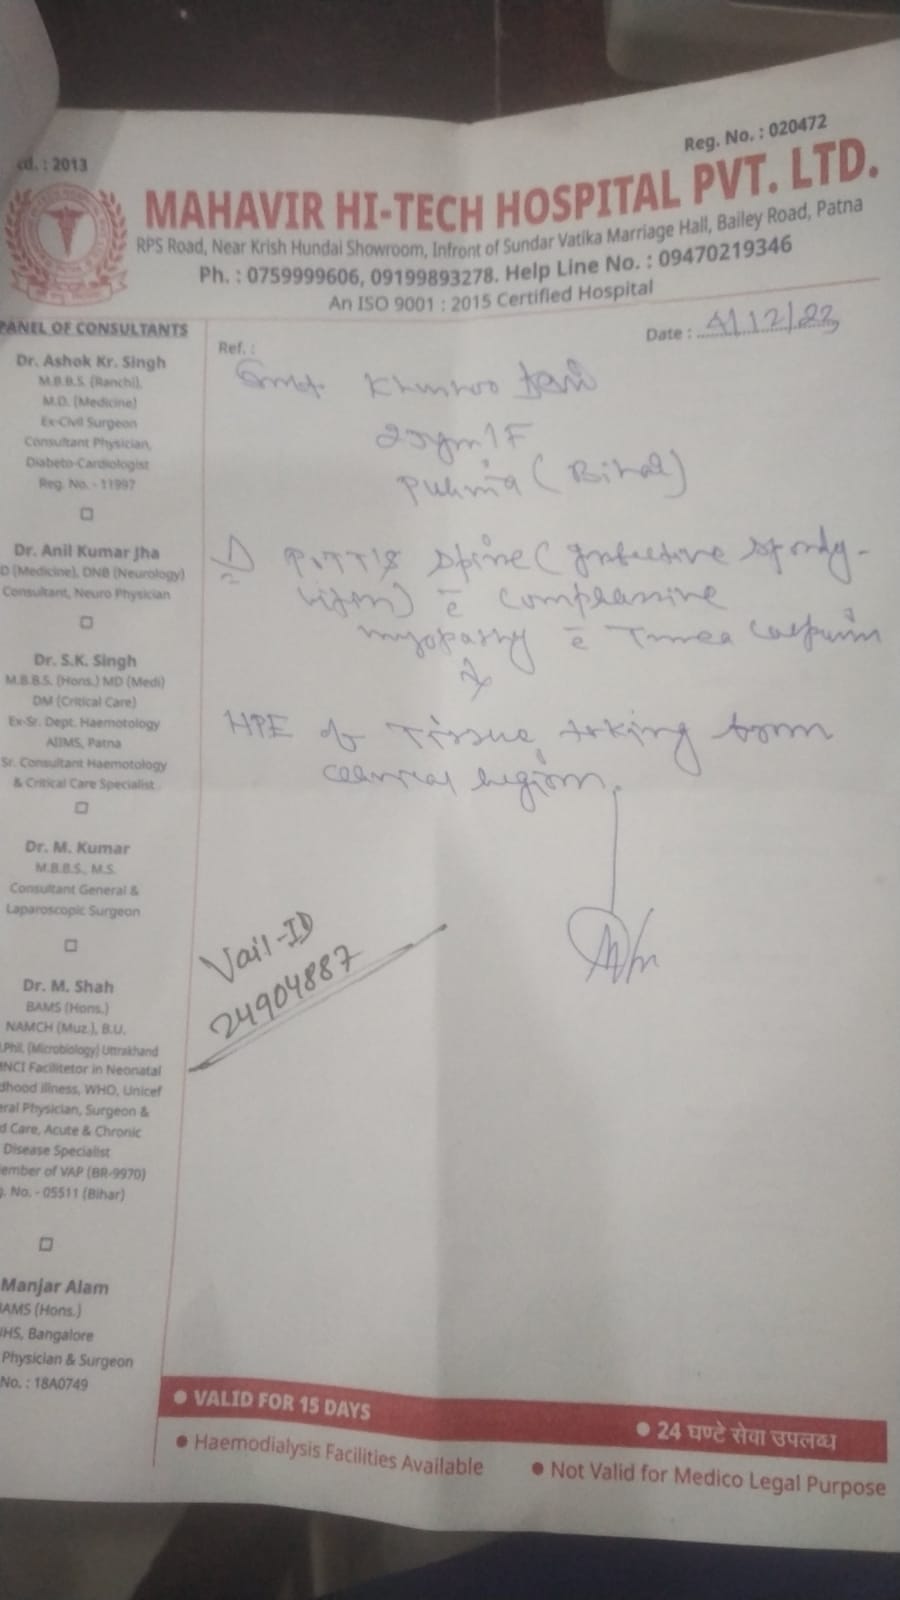 Reg. No. : 020472
td. : 2013
MAHAVIR HI-TECH HOSPITAL PVT. LTD.
RPS Road, Near Krish Hundai Showroom, Infront of Sundar Vatika Marriage Hall, Bailey Road, Patna
Ph. : 0759999606, 09199893278. Help Line No. : 09470219346
An ISO 9001 : 2015 Certified Hospital
PANEL OF CONSULTANTS
Dr. Ashok Kr. Singh
M.B.B.S. (Ranchi),
M.D. (Medicine)
Ex-Civil Surgeon
Consultant Physician,
Diabeto-Cardiologist
Reg. No. - 11997
Dr. Anil Kumar Jha
D (Medicine), DNB (Neurology)
Consultant, Neuro Physician
Dr. S.K. Singh
M.B.B.S. (Hons.) MD (Medi)
DM (Critical Care)
Ex-Sr. Dept. Haemotology
AIIMS, Patna
Sr. Consultant Haemotology
& Critical Care Specialist
Dr. M. Kumar
M.B.B.S., M.S.
Consultant General &
Laparoscopic Surgeon
Dr. M. Shah
BAMS (Hons.)
NAMCH (Muz.), B.U.
.Phil. (Microbiology) Uttrakhand
NCI Facilitetor in Neonatal
dhood Illness, WHO, Unicef
eral Physician, Surgeon &
d Care, Acute & Chronic
Disease Specialist
ember of VAP (BR-9970)
. No. - 05511 (Bihar)
Manjar Alam
AMS (Hons.)
HS, Bangalore
Physician & Surgeon
No. : 18A0749
Ref. :
Date : 4/12/23
Smt
(Bihar)
spine (
c̄
myopathy c̄
HPE of Tissue taking from
cervical region.
Vail-ID
24904887
VALID FOR 15 DAYS
24 घण्टे सेवा उपलब्ध
Haemodialysis Facilities Available
Not Valid for Medico Legal Purpose